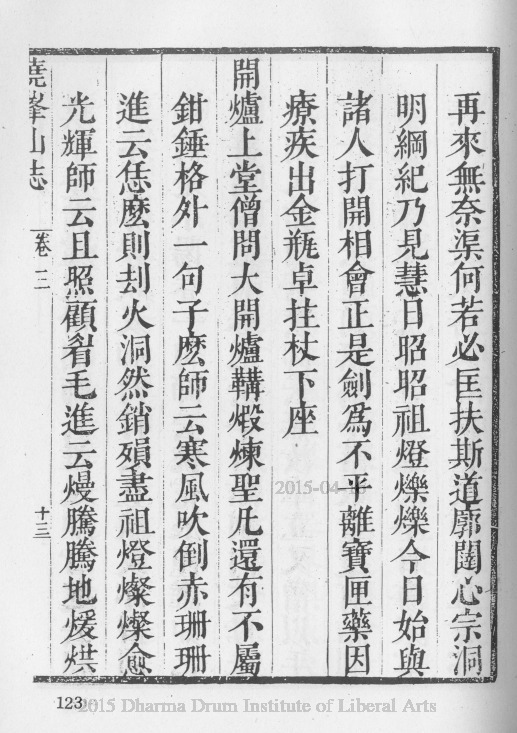 再來無奈渠何若必匡扶斯道廓闊心宗洞
明綱紀乃見慧日昭昭祖燈爍爍今日始與
諸人打開相會正是劍為不平離寶匣藥因
療疾出金瓶卓拄杖下座
開爐上堂僧問大開爐鞴煅煉聖凡還有不屬
鉗錘格外一句子麼師云寒風吹倒赤珊珊
進云恁麼則刦火洞然銷殞盡祖燈燦燦愈
光輝師云且照顧眉毛進云熳騰騰地煖烘
堯峯山志
卷二
十三
123
2015-04-
2015 Dharma Drum Institute of Liberal Arts